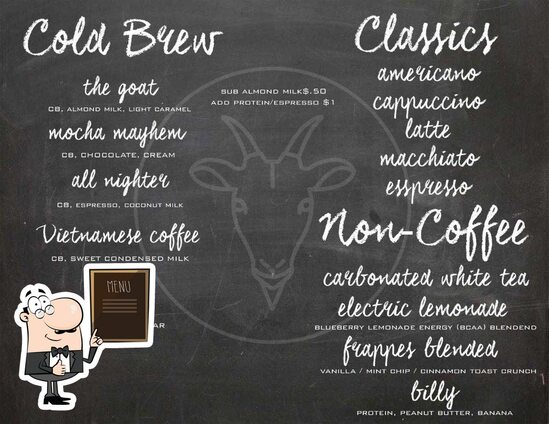 Cold Brew
the goat
CB, ALMOND MILK, LIGHT CARAMEL
mocha mayhem
CB, CHOCOLATE, CREAM
all nighter
CB, ESPRESSO, COCONUT MILK
Vietnamese coffee
CB, SWEET CONDENSED MILK
MENU
SUB ALMOND MILK$.50
ADD PROTEIN/ESPRESSO $1
Classics
americano
cappuccino
latte
macchiato
esspresso
Non-Coffee
carbonated white tea
electric lemonade
BLUEBERRY LEMONADE ENERGY (BCAA) BLENDEND
frappes blended
VANILLA / MINT CHIP / CINNAMON TOAST CRUNCH
billy
PROTEIN, PEANUT BUTTER, BANANA